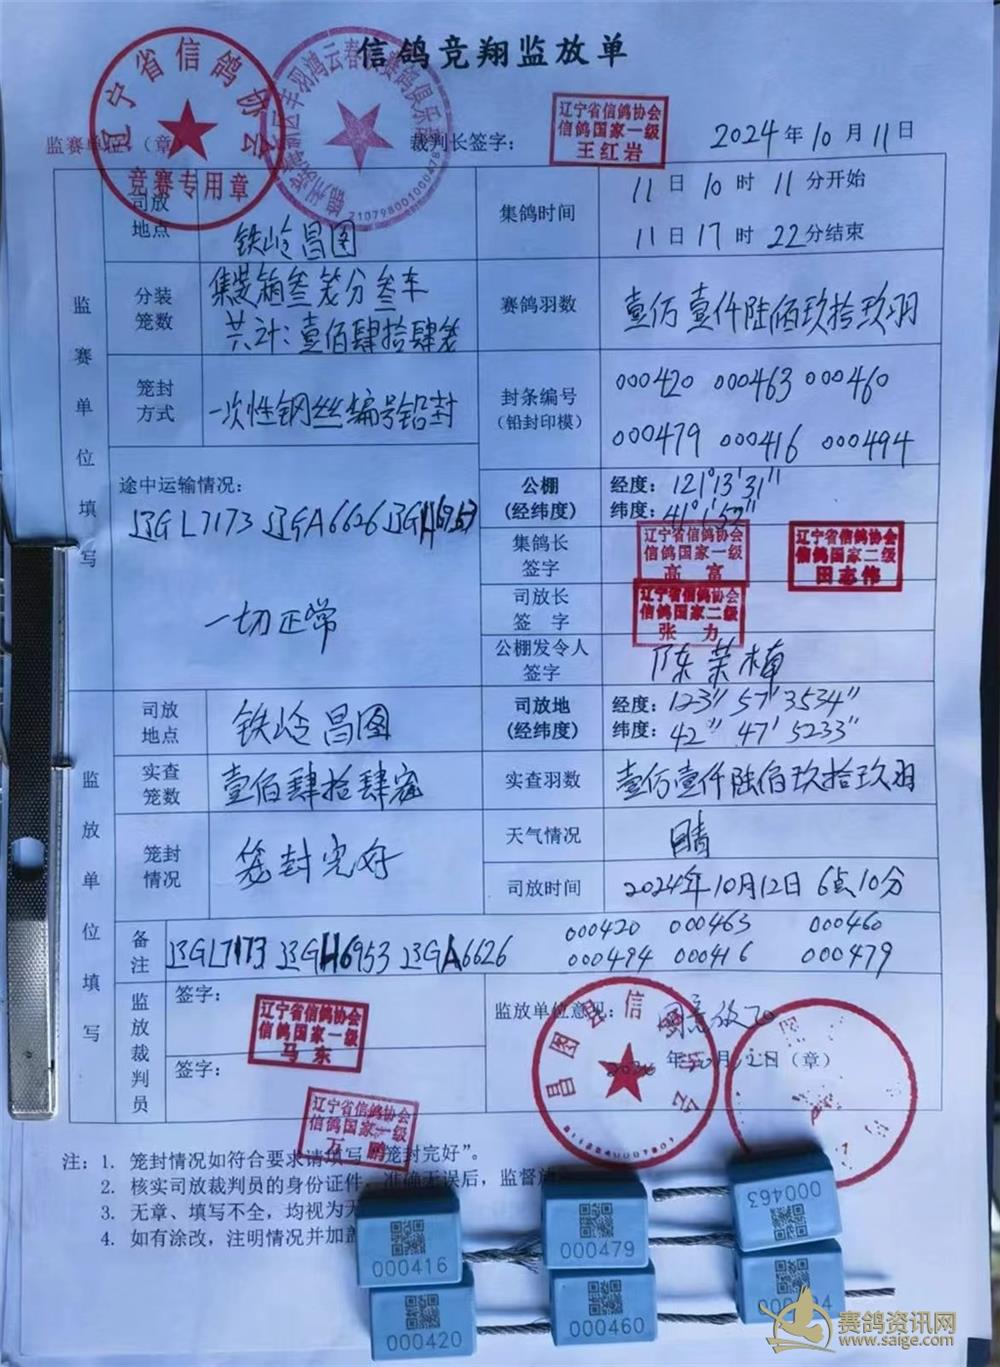 信鸽竞翔监放单
辽宁省信鸽协会
竞赛专用章
监赛单位（章）
裁判长签字：
辽宁省信鸽协会
信鸽国家一级
王红岩
2024年10月11日
监赛单位填写
司放地点
铁岭昌图
集鸽时间
11日10时11分开始
11日17时22分结束
分装笼数
集装箱叁笼分叁车
共计：壹佰肆拾肆笼
赛鸽羽数
壹万壹仟陆佰玖拾玖羽
笼封方式
一次性钢丝编号铅封
封条编号
（铅封印模）
000420 000463 000460
000479 000416 000494
途中运输情况：
辽GL7173 辽GA6626 辽GH6953
一切正常
公棚
（经纬度）
经度：121°13′31″
纬度：41°1′52″
集鸽长签字
辽宁省信鸽协会
信鸽国家一级
高富
辽宁省信鸽协会
信鸽国家二级
田志伟
司放长签字
辽宁省信鸽协会
信鸽国家二级
张力
公棚发令人签字
陈荣楠
监放单位填写
司放地点
铁岭昌图
司放地
（经纬度）
经度：123″57′3534″
纬度：42″47′5233″
实查笼数
壹佰肆拾肆笼
实查羽数
壹万壹仟陆佰玖拾玖羽
笼封情况
笼封完好
天气情况
晴
司放时间
2024年10月12日6点10分
备注
辽GL7173 辽GH6953 辽GA6626
000420 000463 000460
000494 000416 000479
监放裁判员
签字：
辽宁省信鸽协会
信鸽国家一级
马东
签字：
辽宁省信鸽协会
信鸽国家一级
万鹏
监放单位意见：
同意放飞
年10月12日（章）
昌图县信鸽协会
注：1. 笼封情况如符合要求请填写“笼封完好”。
2. 核实司放裁判员的身份证件，准确无误后，监督放
3. 无章、填写不全，均视为无
4. 如有涂改，注明情况并加盖
000463
000416
000479
000420
000460
赛鸽资讯网
www.saige.com